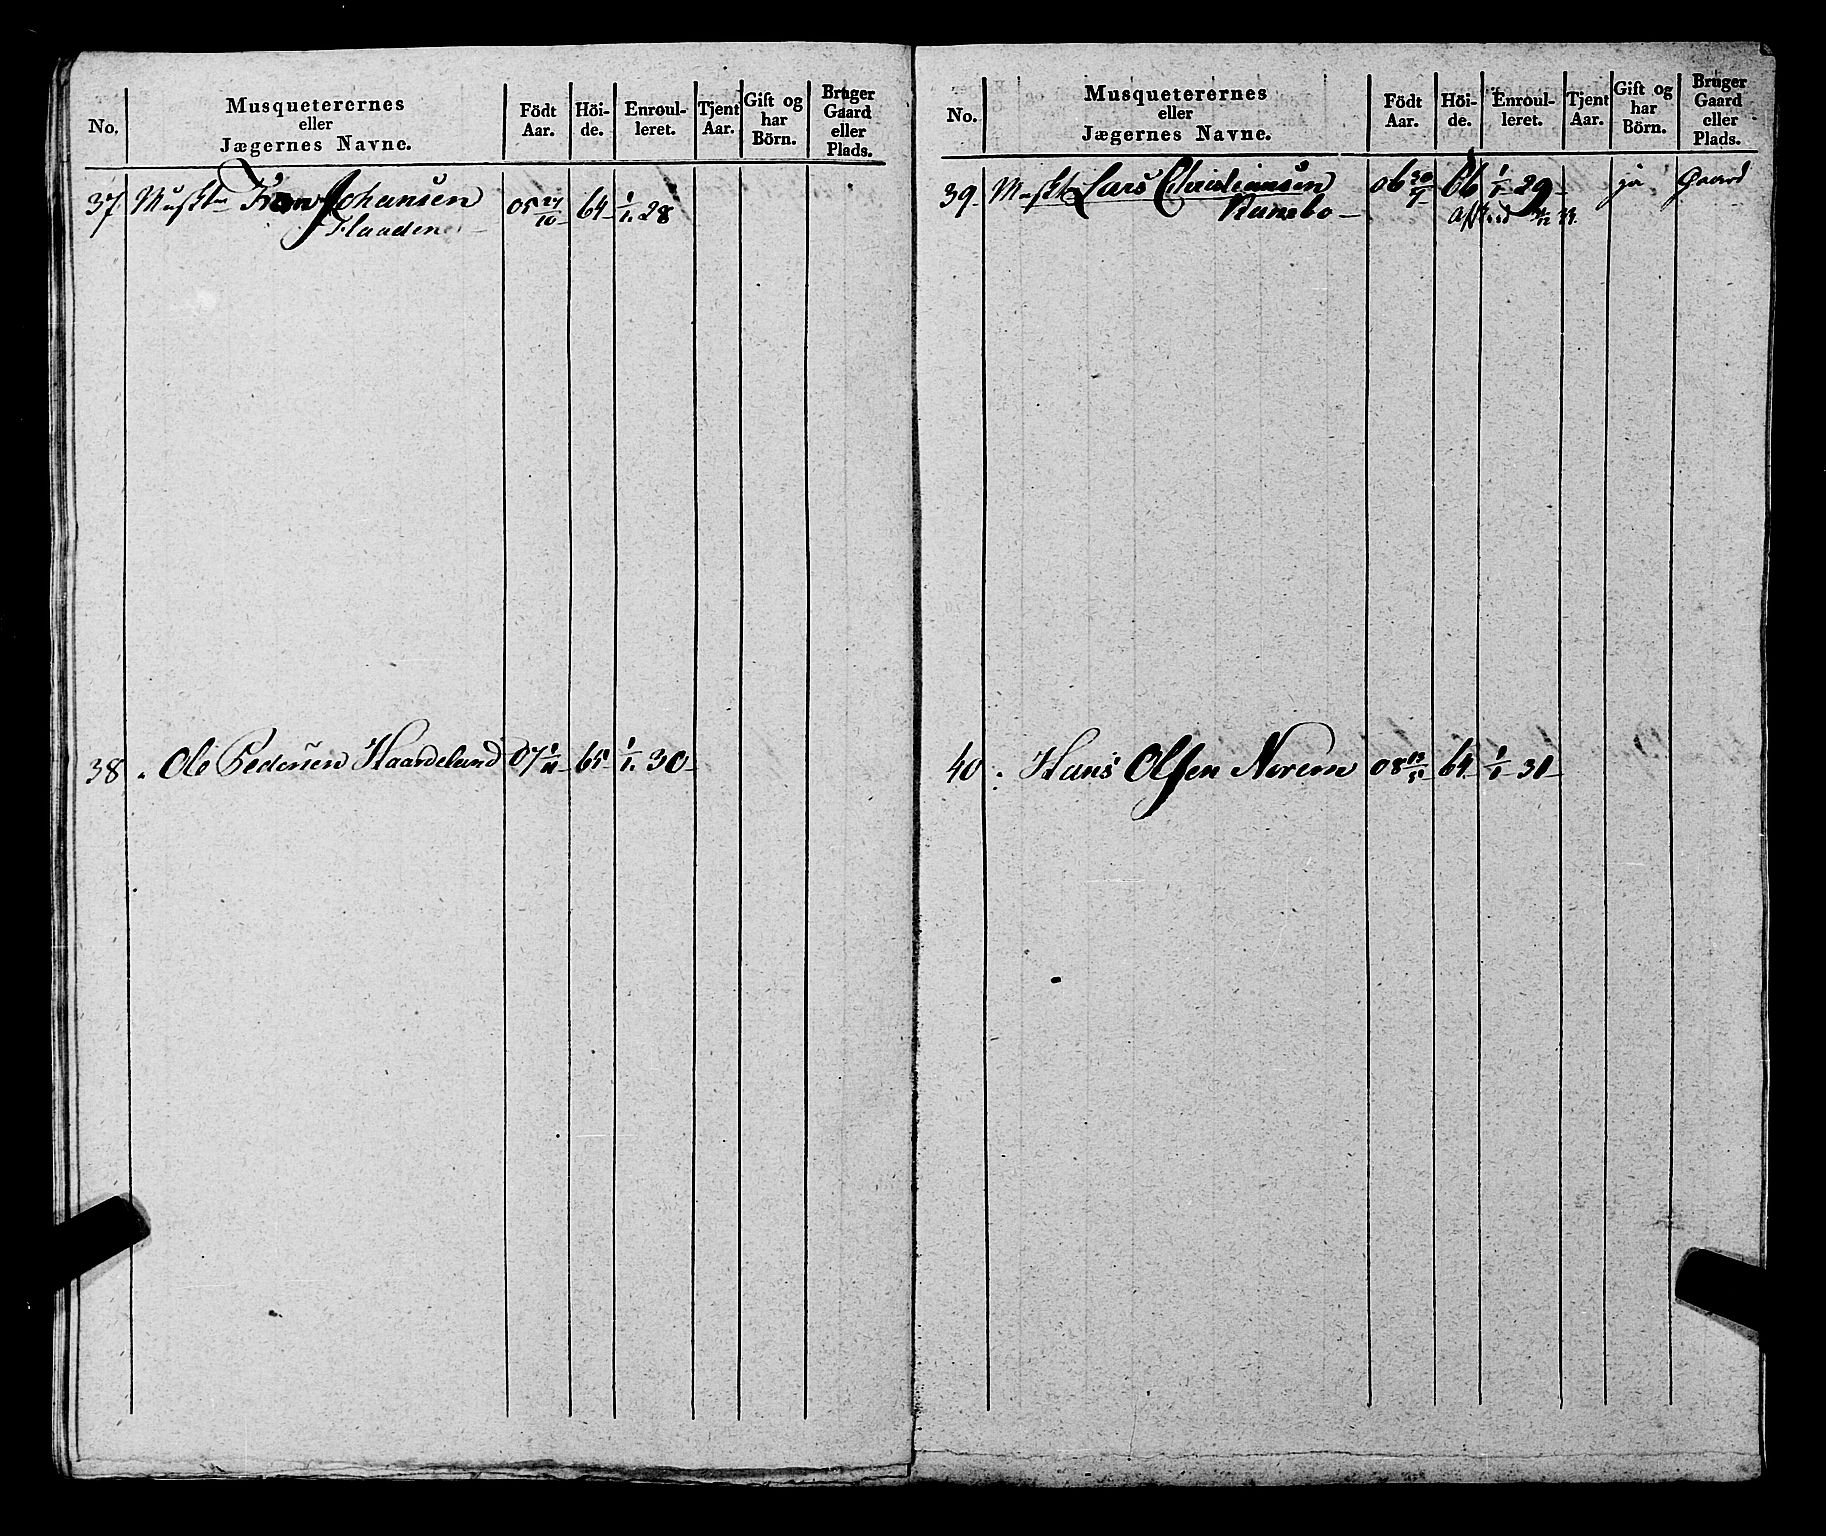 No.
Musqueterernes
eller
Jægernes Navne.
Födt
Aar.
Höi-
de.
Enroul-
leret.
Tjent
Aar.
Gift og
har
Börn.
Bruger
Gaard
eller
Plads.
37 Johansen 05 64 1/1 28
38 Ole Pedersen Haardelund 07 65 1/1 30
No.
Musqueterernes
eller
Jægernes Navne.
Födt
Aar.
Höi-
de.
Enroul-
leret.
Tjent
Aar.
Gift og
har
Börn.
Bruger
Gaard
eller
Plads.
39 Lars Christiansen 06 66 1/1 29 ja Gaard
40 Hans Olsen Nerem 08 64 1/1 31